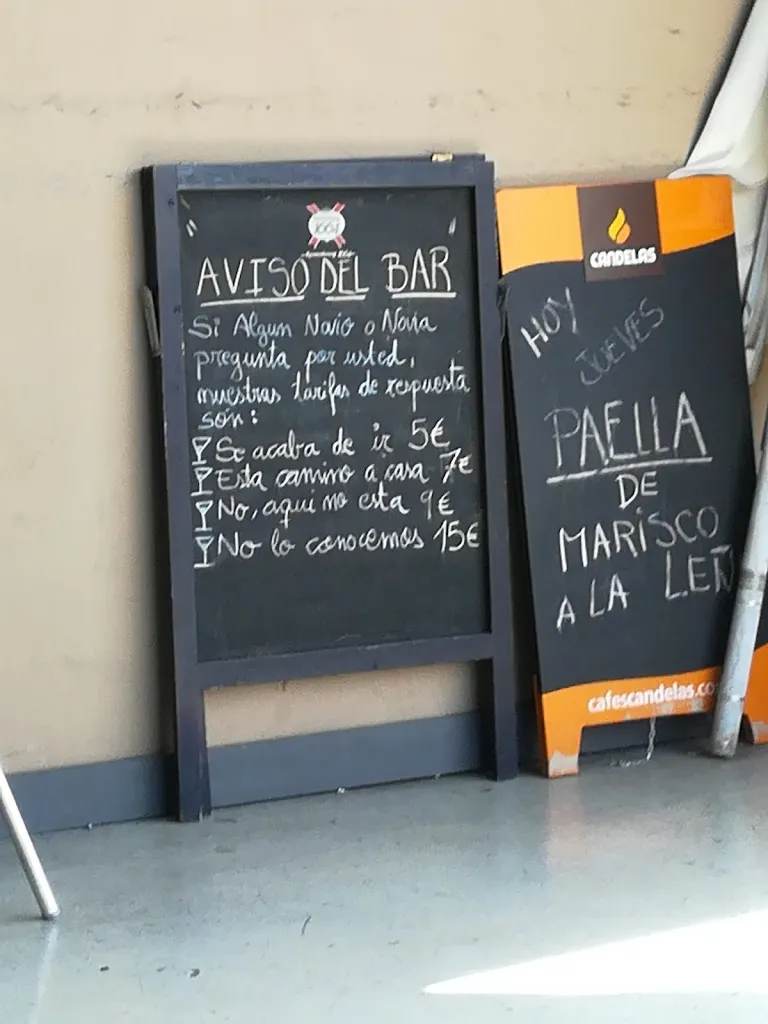 1664
AVISO DEL BAR
Si Algun Novio o Novia
pregunta por usted,
nuestras tarifas de respuesta
són:
Se acaba de ir 5€
Esta camino a casa 7€
No, aqui no esta 9€
No lo conocemos 15€
CANDELAS
HOY
JUEVES
PAELLA
DE
MARISCO
A LA LEÑ
cafescandelas.co